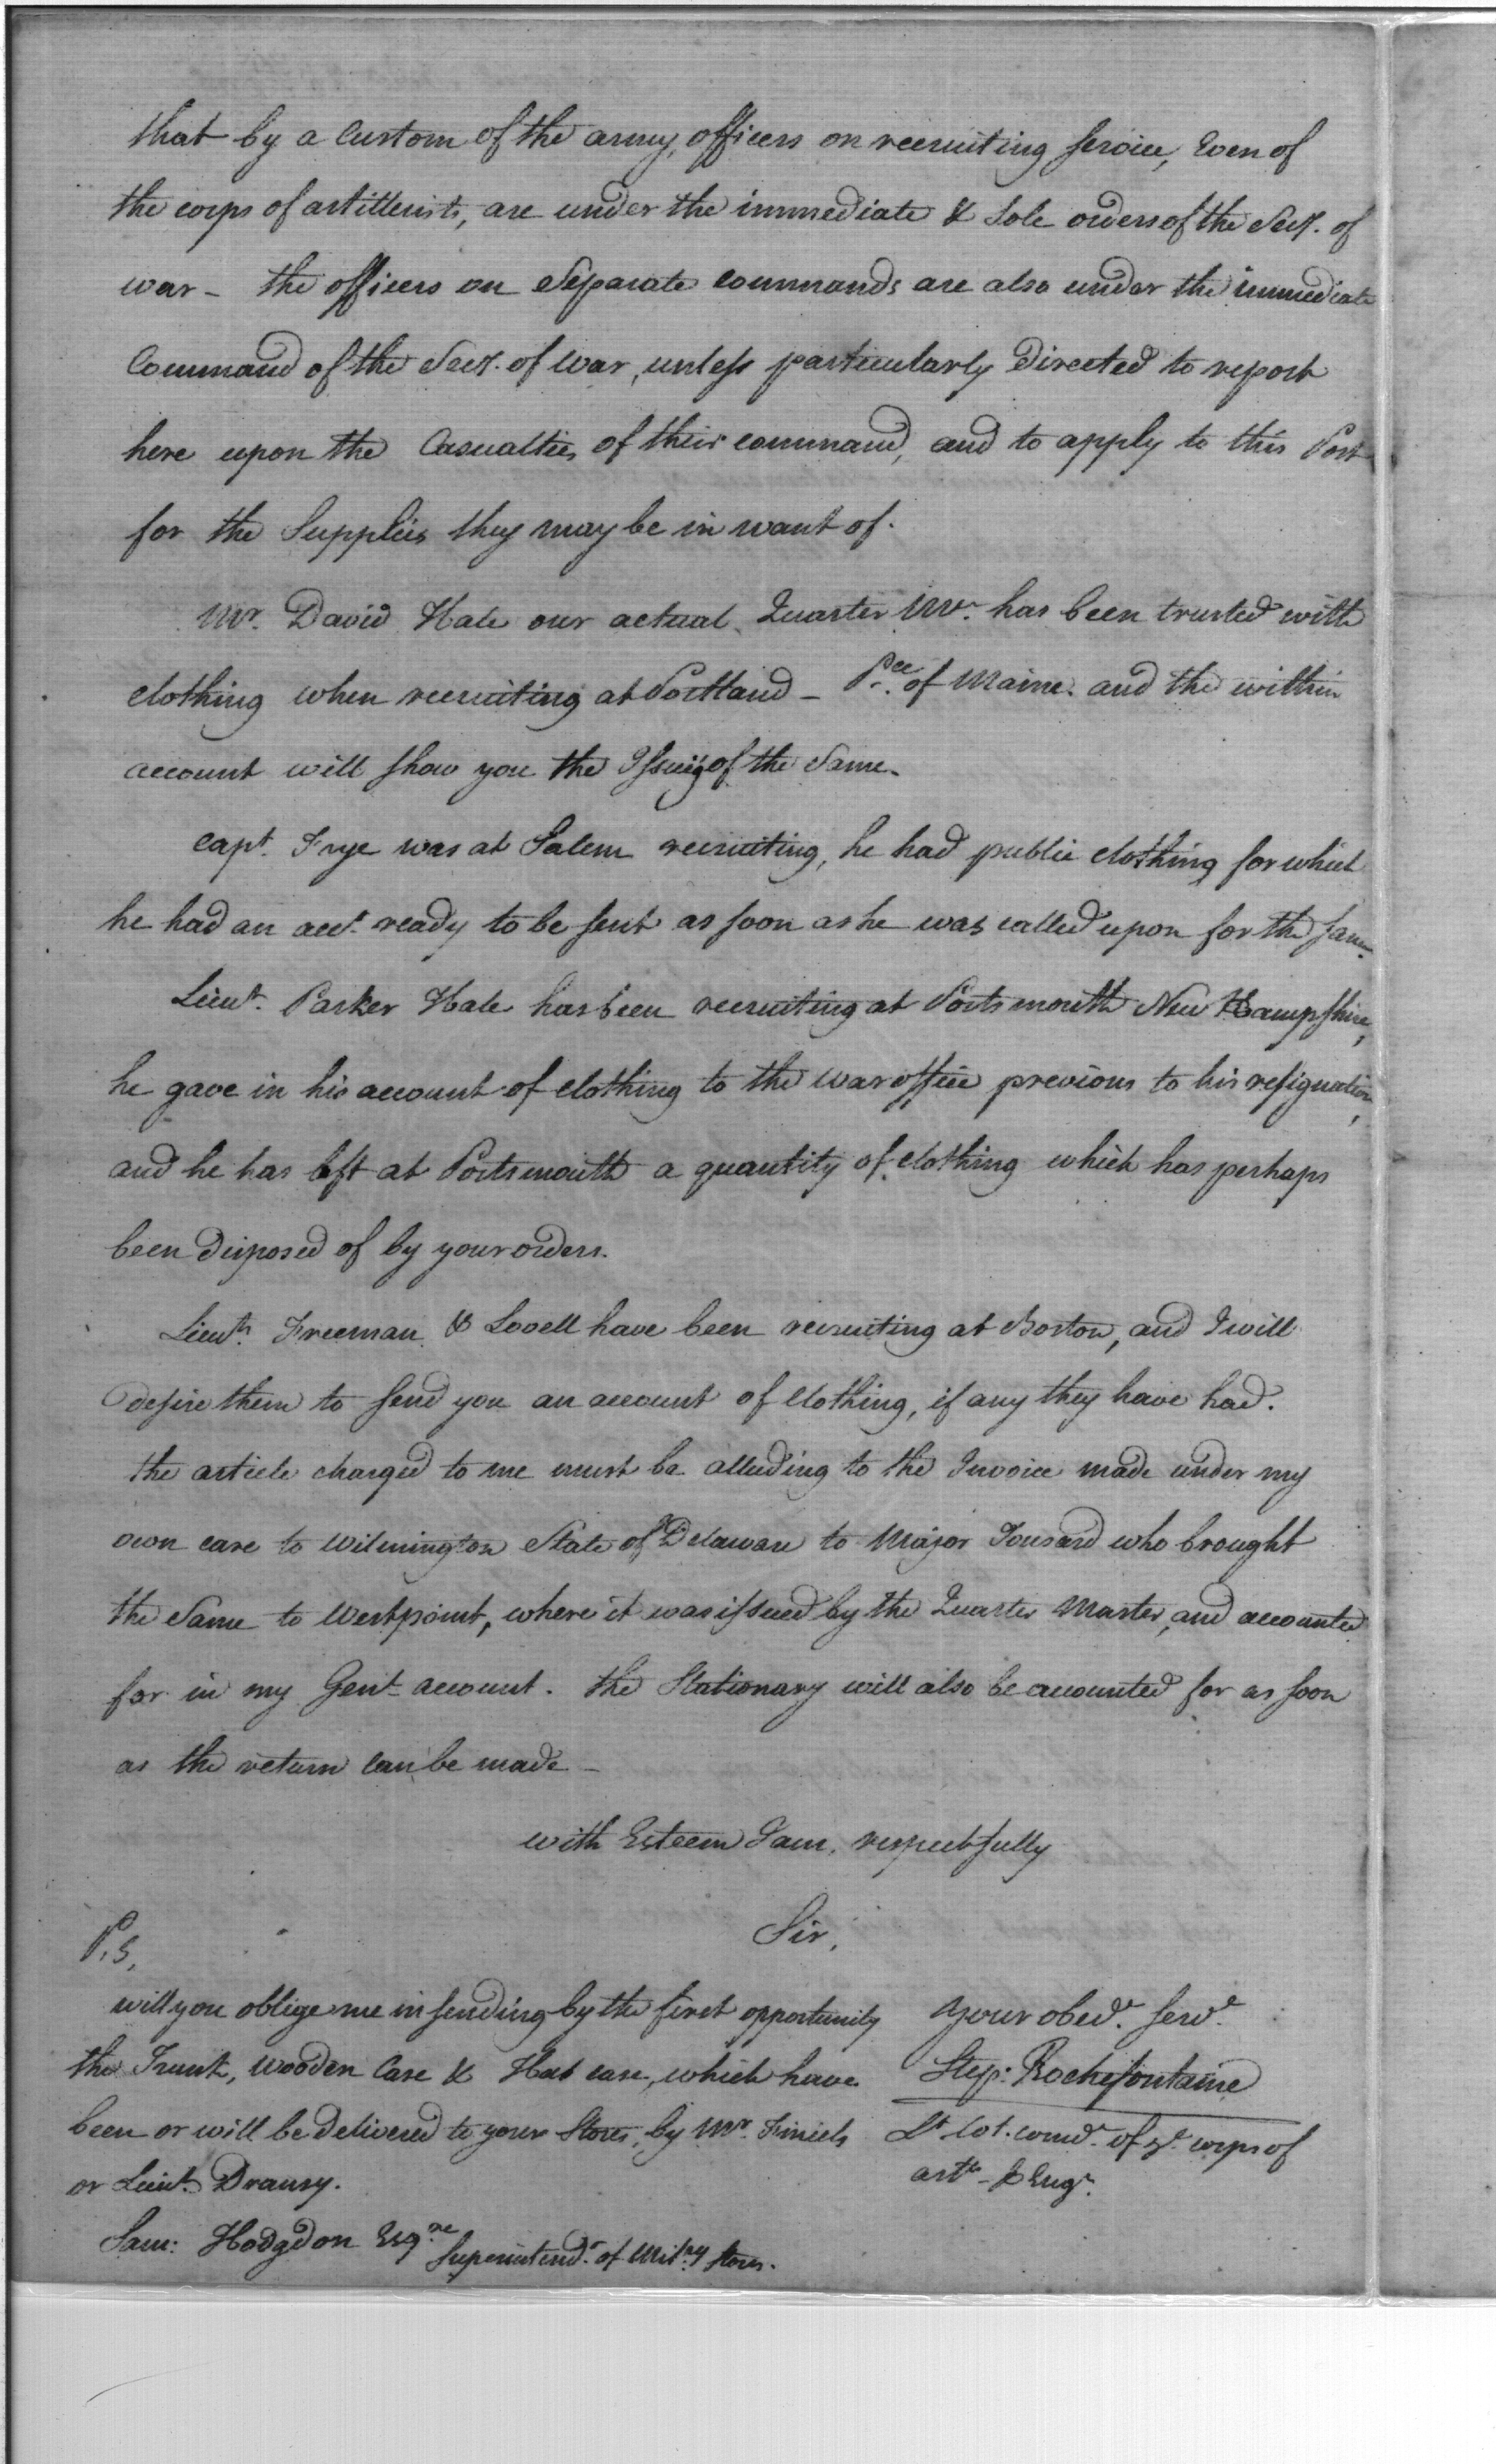 that by a Custom of the army, officers on recruiting service, Even of
the corps of artillerists, are under the immediate & Sole orders of the Secy. of
war – the officers on Separate commands are also under the immediate
Command of the Secy. of war, unless particularly Directed to report
here upon the Casualties of their command, and to apply to this Post
for the Supplies they may be in want of.
Mr. David Hale our actual Quarter Mr. has been trusted with
clothing when recruiting at Portland – Pce. of Maine. and the within
account will show you the Issuing of the Same.
Capt. Frye was at Salem recruiting, he had public clothing for which
he had an acct. ready to be sent as soon as he was called upon for the same.
Lieut. Parker Hale has been recruiting at Portsmouth New Hampshire,
he gave in his account of clothing to the war office previous to his resignation,
and he has left at Portsmouth a quantity of clothing which has perhaps
been Disposed of by your orders.
Lieuts. Freeman & Lovell have been recruiting at Boston, and I will
desire them to send you an account of Clothing, if any they have had.
the article charged to me must be alluding to the Invoice made under my
own care to Wilmington State of Delaware to Major Tousard who brought
the Same to Westpoint, where it was issued by the Quarter Master, and accounted
for in my Genl. account. the Stationary will also be accounted for as soon
as the return can be made –
with Esteem I am, respectfully
Sir,
P.S,
will you oblige me in sending by the first opportunity
the Trunk, Wooden Case & Hat case, which have
been or will be Delivered to your Stores, by Mr. Finiels
or Lieut. Dransy.
your obedt. servt.
Step: Rochefontaine
Lt. Col. comdt. of ye. corps of
artts. & Engrs.
Sam: Hodgdon Esqre.
Superintendt. of Mily. stores.